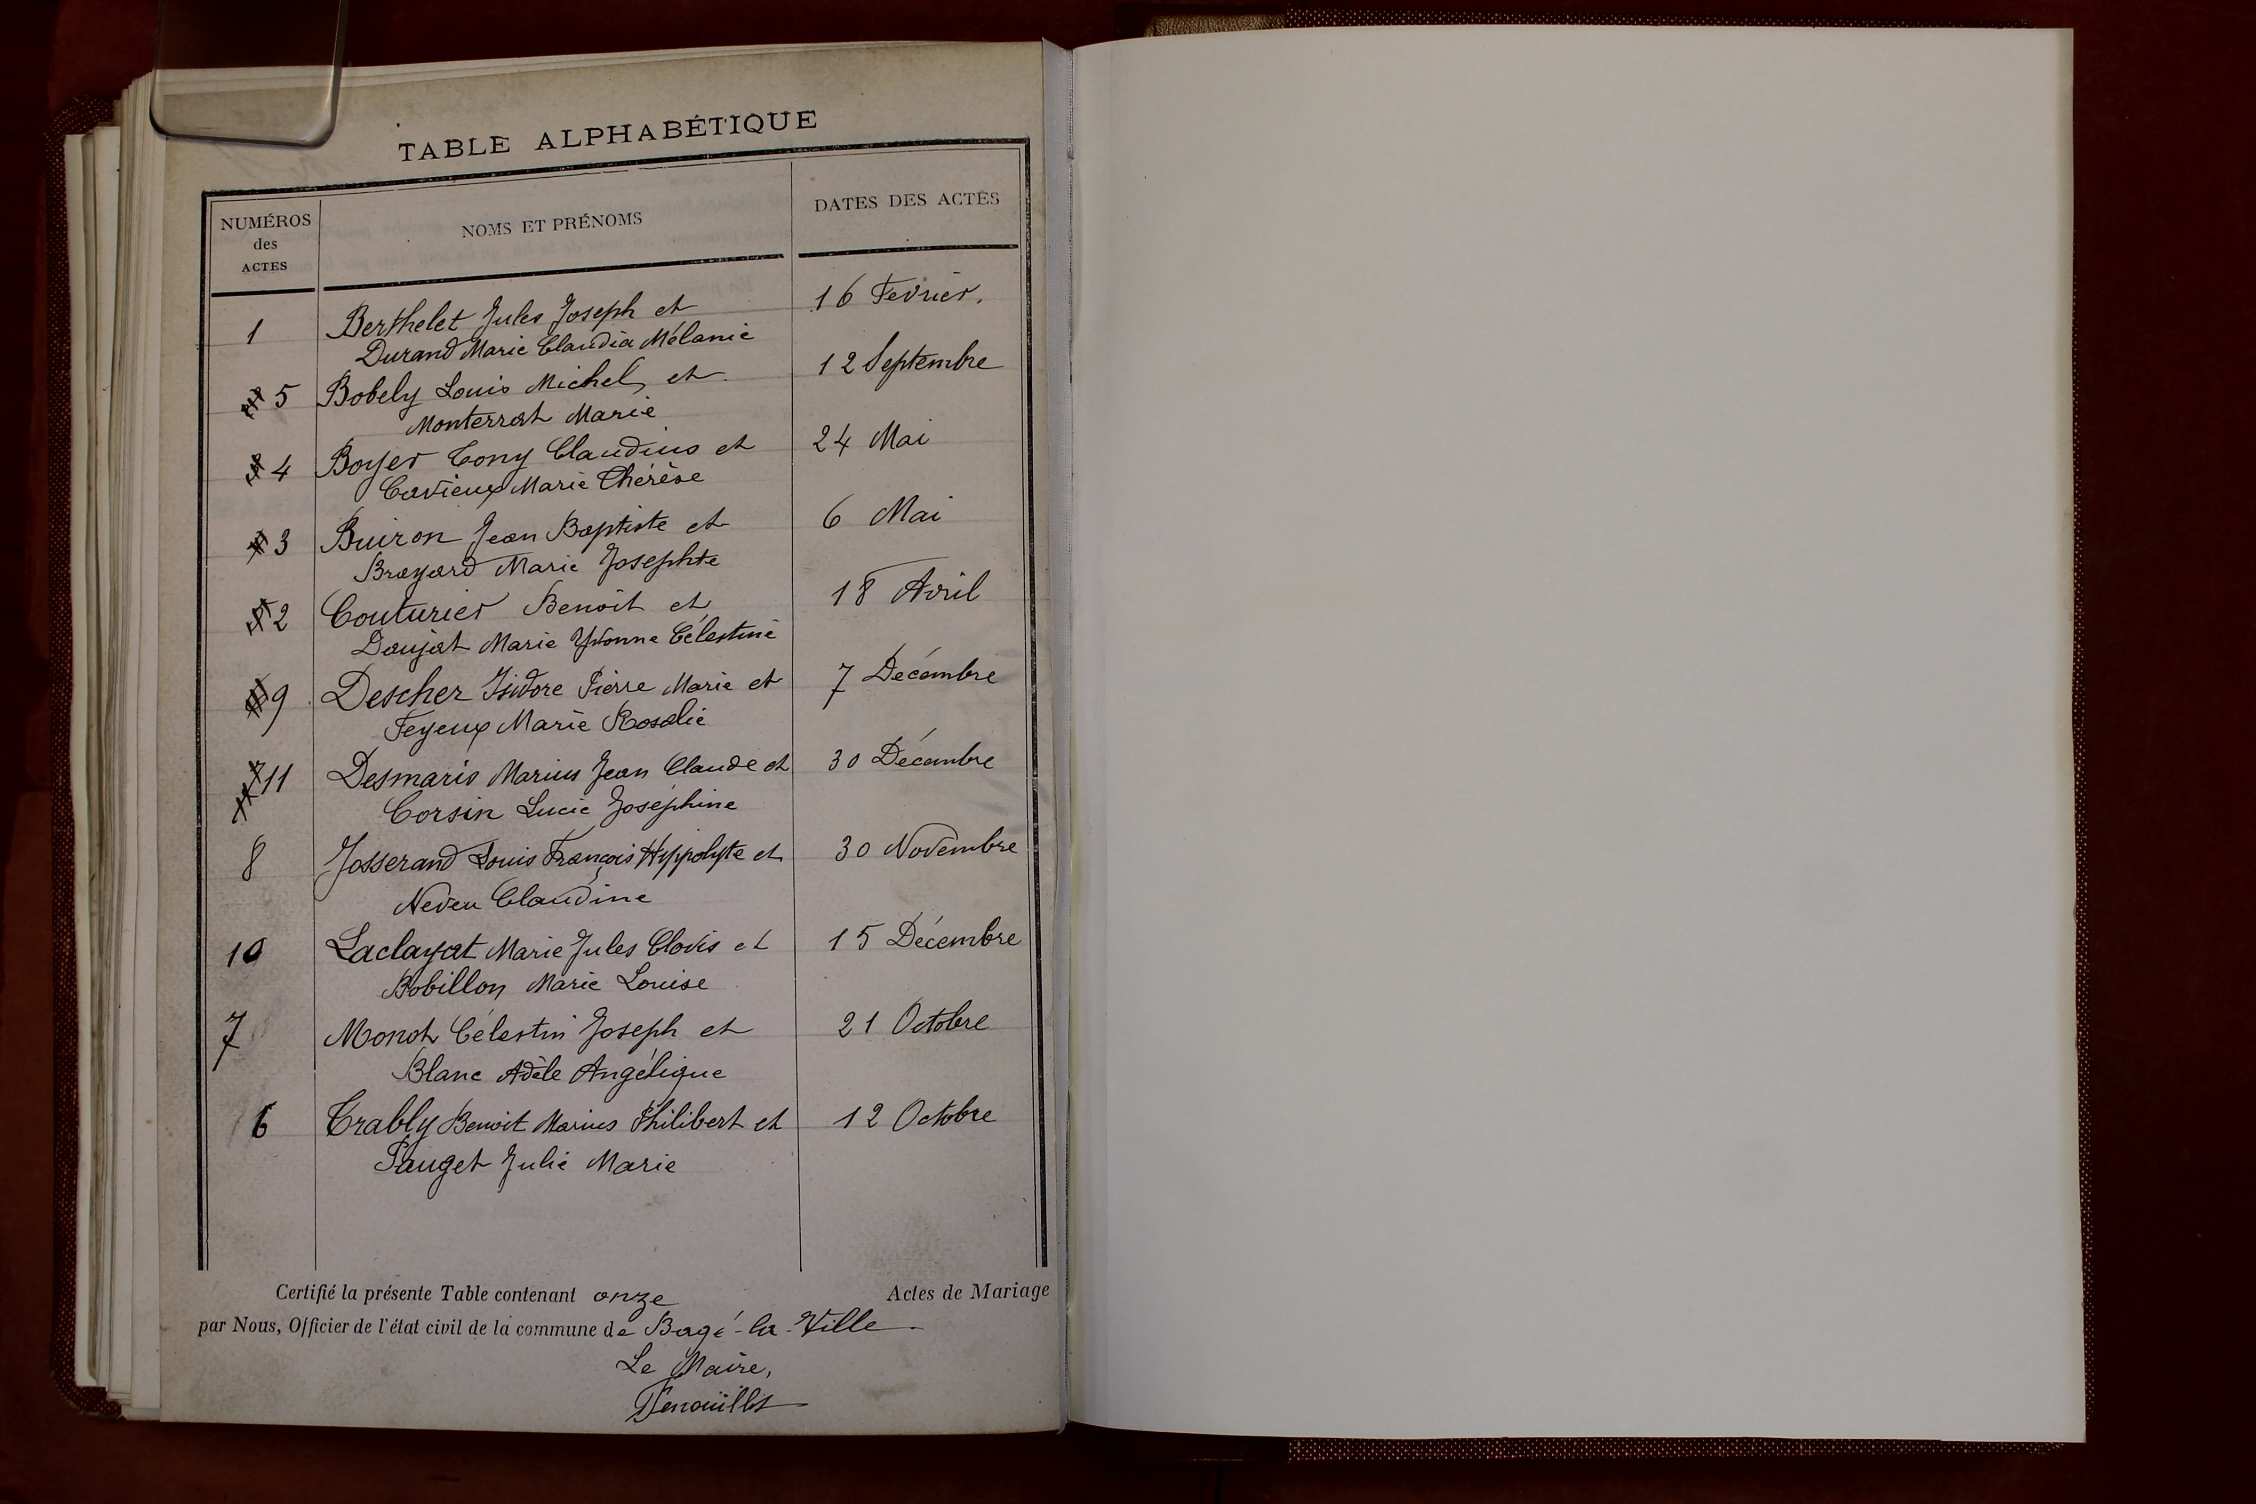 TABLE ALPHABÉTIQUE
NUMÉROS
des
ACTES
NOMS ET PRÉNOMS
DATES DES ACTES
1 Berthelet Jules Joseph et 16 Fevrier.
Durand Marie Claudia Mélanie
5 Bobely Louis Michel et 12 Septembre
Monterrat Marie
4 Boyer Tony Claudius et 24 Mai
Cavieux Marie Thérèse
3 Buiron Jean Baptiste et 6 Mai
Brayard Marie Josephte
2 Couturier Benoît et 18 Avril
Daujat Marie Yvonne Célestine
9 Descher Isidore Pierre Marie et 7 Décembre
Feyeux Marie Rosalie
11 Desmaris Marius Jean Claude et 30 Décembre
Corsin Lucie Joséphine
8 Josserand Louis François Hyppolyte et 30 Novembre
Neveu Claudine
10 Laclayat Marie Jules Clovis et 15 Décembre
Bobillon Marie Louise
7 Monot Célestin Joseph et 21 Octobre
Blanc Adèle Angélique
6 Trably Benoit Marius Philibert et 12 Octobre
Pauget Julie Marie
Certifié la présente Table contenant onze Actes de Mariage
par Nous, Officier de l'état civil de la commune de Bagé-la-Ville
Le Maire,